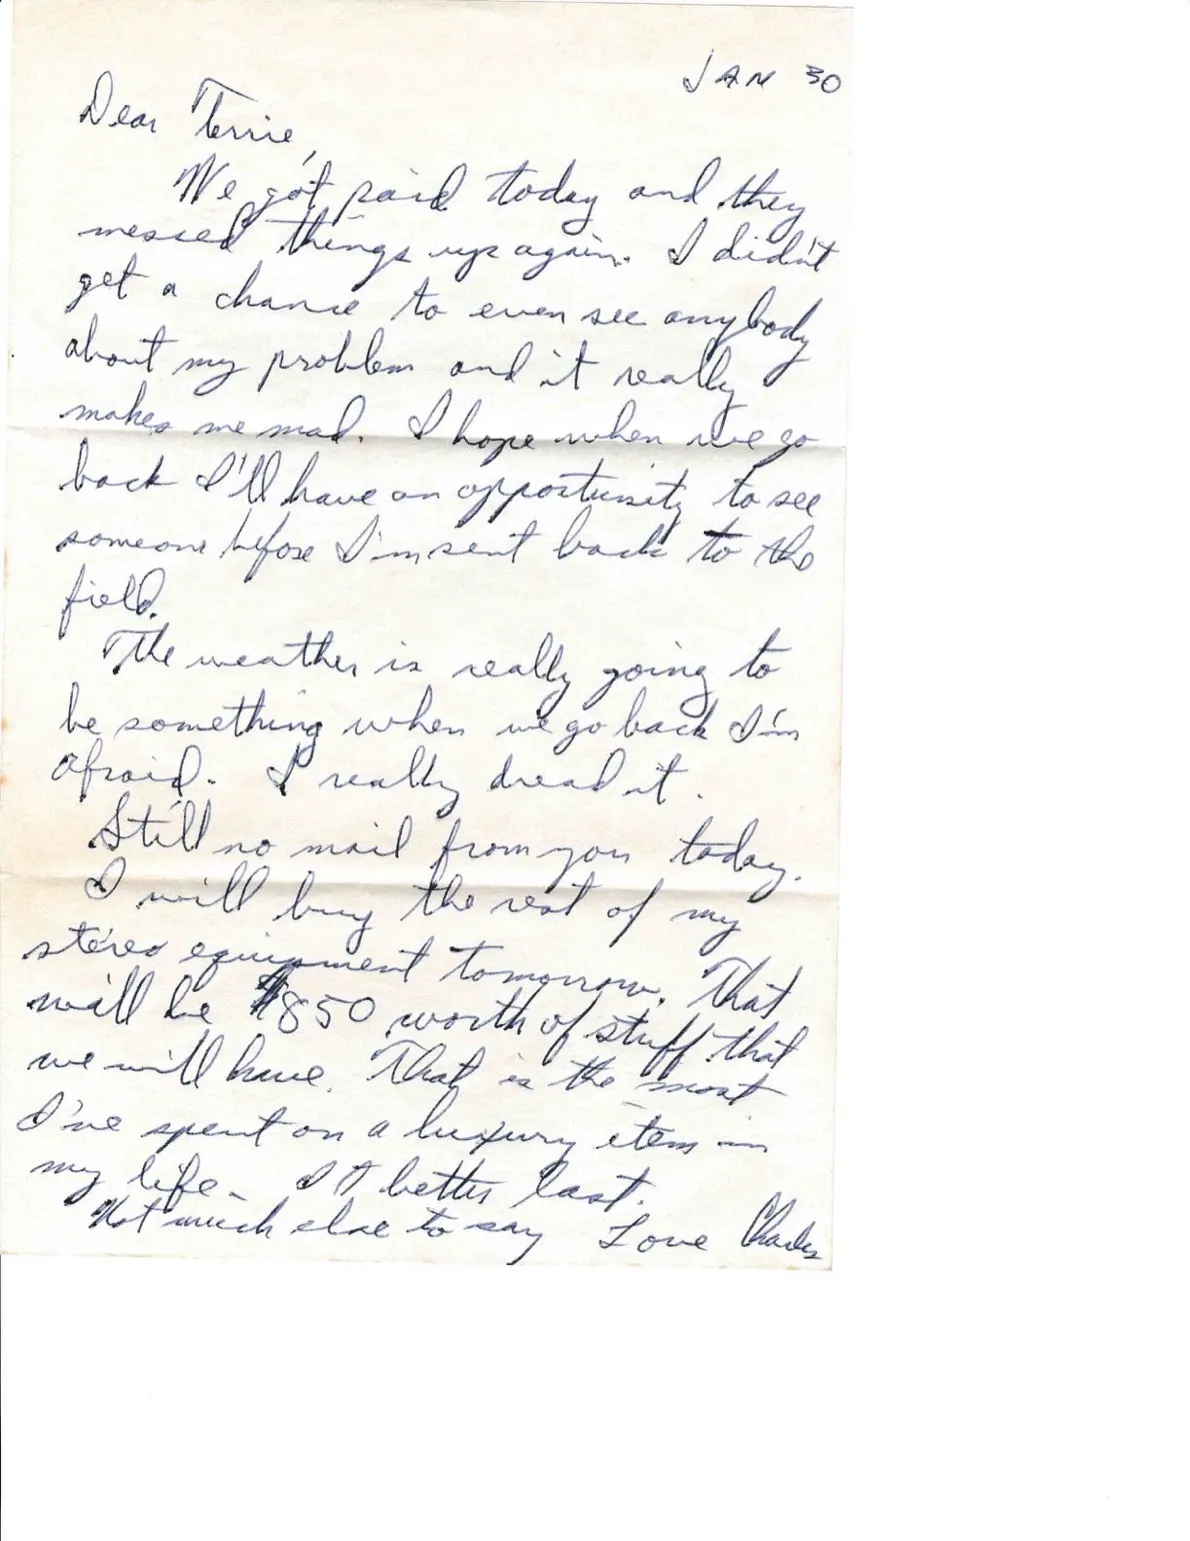 JAN 30
Dear Terrie,
We got paid today and they
messed things up again. I didn't
get a chance to even see anybody
about my problem and it really
makes me mad. I hope when we go
back I'll have an opportunity to see
someone before I'm sent back to the
field.
The weather is really going to
be something when we go back I'm
afraid. I really dread it.
Still no mail from you today.
I will buy the rest of my
stereo equipment tomorrow. That
will be $850 worth of stuff that
we will have. That is the most
I've spent on a luxury item in
my life. It better last.
Not much else to say Love Charles